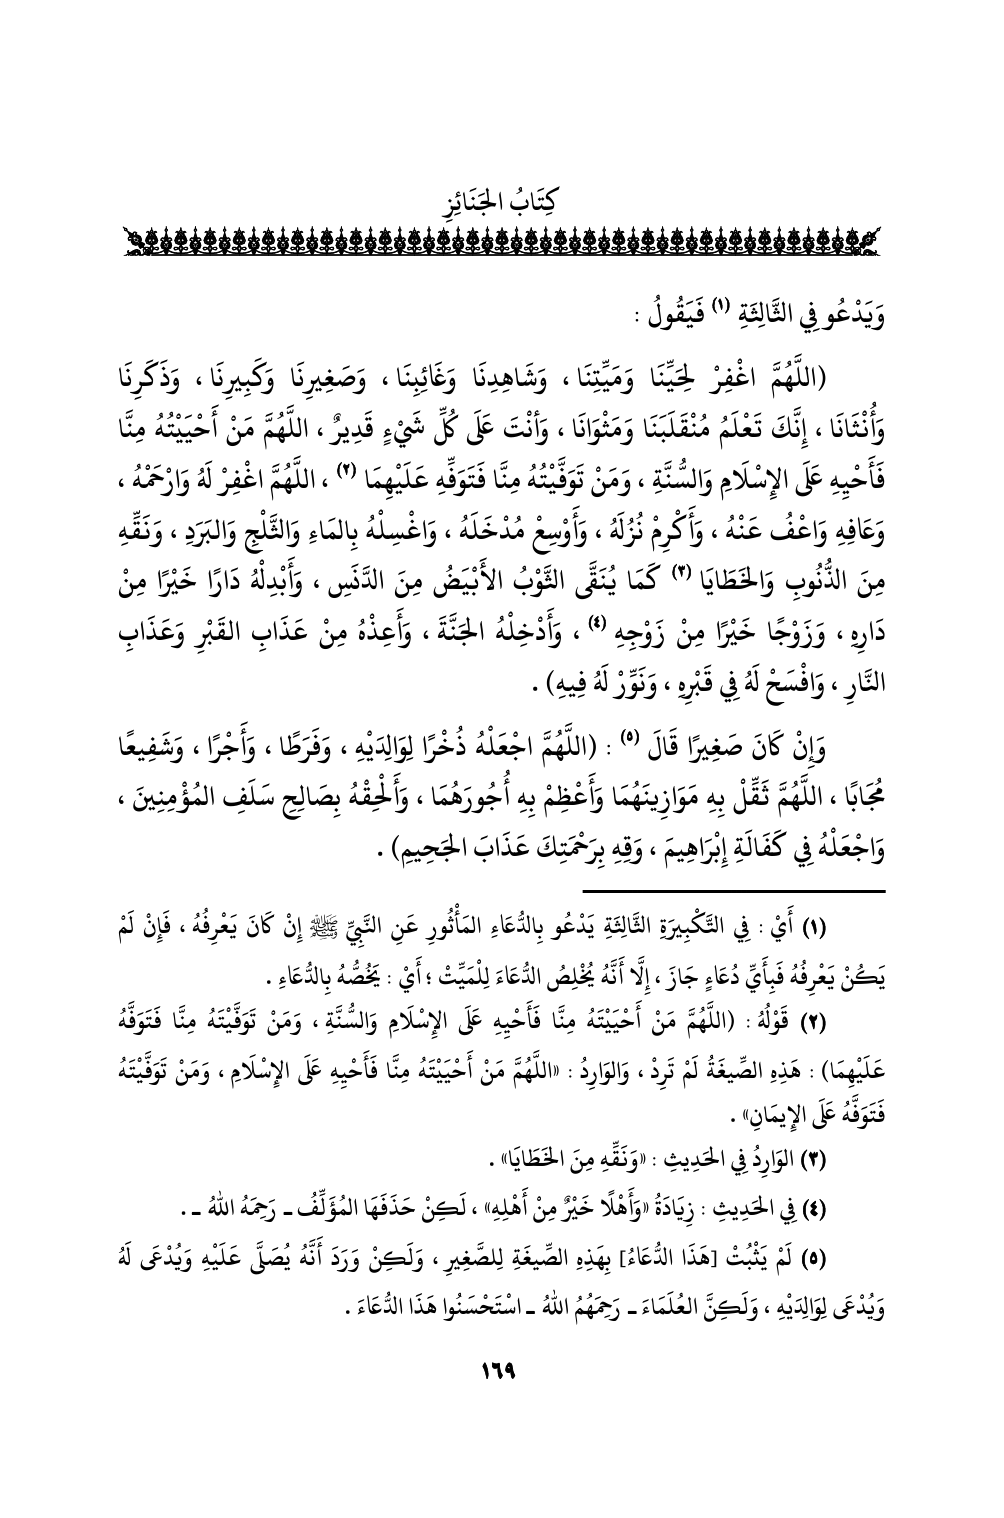 كِتَابُ الجَنَائِزِ
وَيَدْعُو فِي الثَّالِثَةِ (١) فَيَقُولُ :
(اللَّهُمَّ اغْفِرْ لِحَيِّنَا وَمَيِّتِنَا ، وَشَاهِدِنَا وَغَائِبِنَا ، وَصَغِيرِنَا وَكَبِيرِنَا ، وَذَكَرِنَا
وَأُنْثَانَا ، إِنَّكَ تَعْلَمُ مُنْقَلَبَنَا وَمَثْوَانَا ، وَأَنْتَ عَلَى كُلِّ شَيْءٍ قَدِيرٌ ، اللَّهُمَّ مَنْ أَحْيَيْتُهُ مِنَّا
فَأَحْيِهِ عَلَى الإِسْلَامِ وَالسُّنَّةِ ، وَمَنْ تَوَفَّيْتُهُ مِنَّا فَتَوَفِّهِ عَلَيْهِمَا (٢) ، اللَّهُمَّ اغْفِرْ لَهُ وَارْحَمْهُ ،
وَعَافِهِ وَاعْفُ عَنْهُ ، وَأَكْرِمْ نُزُلَهُ ، وَأَوْسِعْ مُدْخَلَهُ ، وَاغْسِلْهُ بِالمَاءِ وَالثَّلْجِ وَالبَرَدِ ، وَنَقِّهِ
مِنَ الذُّنُوبِ وَالخَطَايَا (٣) كَمَا يُنَقَّى الثَّوْبُ الأَبْيَضُ مِنَ الدَّنَسِ ، وَأَبْدِلْهُ دَارًا خَيْرًا مِنْ
دَارِهِ ، وَزَوْجًا خَيْرًا مِنْ زَوْجِهِ (٤) ، وَأَدْخِلْهُ الجَنَّةَ ، وَأَعِذْهُ مِنْ عَذَابِ القَبْرِ وَعَذَابِ
النَّارِ ، وَافْسَحْ لَهُ فِي قَبْرِهِ ، وَنَوِّرْ لَهُ فِيهِ) .
وَإِنْ كَانَ صَغِيرًا قَالَ (٥) : (اللَّهُمَّ اجْعَلْهُ ذُخْرًا لِوَالِدَيْهِ ، وَفَرَطًا ، وَأَجْرًا ، وَشَفِيعًا
مُجَابًا ، اللَّهُمَّ ثَقِّلْ بِهِ مَوَازِينَهُمَا وَأَعْظِمْ بِهِ أُجُورَهُمَا ، وَأَلْحِقْهُ بِصَالِحِ سَلَفِ المُؤْمِنِينَ ،
وَاجْعَلْهُ فِي كَفَالَةِ إِبْرَاهِيمَ ، وَقِهِ بِرَحْمَتِكَ عَذَابَ الجَحِيمِ) .
(١) أَيْ : فِي التَّكْبِيرَةِ الثَّالِثَةِ يَدْعُو بِالدُّعَاءِ المَأْثُورِ عَنِ النَّبِيِّ ﷺ إِنْ كَانَ يَعْرِفُهُ ، فَإِنْ لَمْ
يَكُنْ يَعْرِفُهُ فَبِأَيِّ دُعَاءٍ جَازَ ، إِلَّا أَنَّهُ يُخْلِصُ الدُّعَاءَ لِلْمَيِّتْ ؛ أَيْ : يَخُصُّهُ بِالدُّعَاءِ .
(٢) قَوْلُهُ : (اللَّهُمَّ مَنْ أَحْيَيْتَهُ مِنَّا فَأَحْيِهِ عَلَى الإِسْلَامِ وَالسُّنَّةِ ، وَمَنْ تَوَفَّيْتَهُ مِنَّا فَتَوَفَّهُ
عَلَيْهِمَا) : هَذِهِ الصِّيغَةُ لَمْ تَرِدْ ، وَالوَارِدُ : «اللَّهُمَّ مَنْ أَحْيَيْتَهُ مِنَّا فَأَحْيِهِ عَلَى الإِسْلَامِ ، وَمَنْ تَوَفَّيْتَهُ
فَتَوَفَّهُ عَلَى الإِيمَانِ» .
(٣) الوَارِدُ فِي الحَدِيثِ : «وَنَقِّهِ مِنَ الخَطَايَا» .
(٤) فِي الحَدِيثِ : زِيَادَةُ «وَأَهْلًا خَيْرٌ مِنْ أَهْلِهِ» ، لَكِنْ حَذَفَهَا المُؤَلِّفُ ـ رَحِمَهُ اللهُ ـ .
(٥) لَمْ يَثْبُتْ [هَذَا الدُّعَاءُ] بِهَذِهِ الصِّيغَةِ لِلصَّغِيرِ ، وَلَكِنْ وَرَدَ أَنَّهُ يُصَلَّى عَلَيْهِ وَيُدْعَى لَهُ
وَيُدْعَى لِوَالِدَيْهِ ، وَلَكِنَّ العُلَمَاءَ ـ رَحِمَهُمُ اللهُ ـ اسْتَحْسَنُوا هَذَا الدُّعَاءَ .
١٦٩